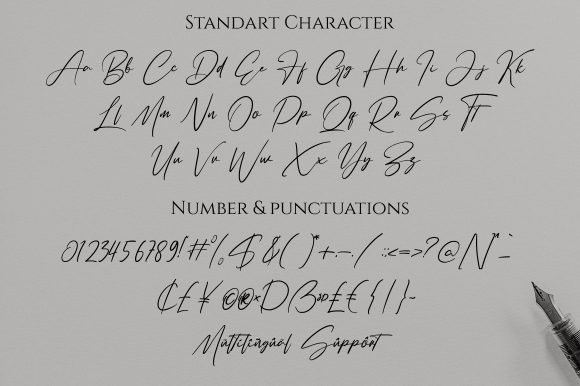 Standart Character
Aa Bb Cc Dd Ee Ff Gg Hh Ii Jj Kk
Ll Mm Nn Oo Pp Qq Rr Ss Tt
Uu Vv Ww Xx Yy Zz
Number & punctuations
0123456789!"#%$&()*+,-./:;<=>?@
¢£¥©®×
Multilingual Support